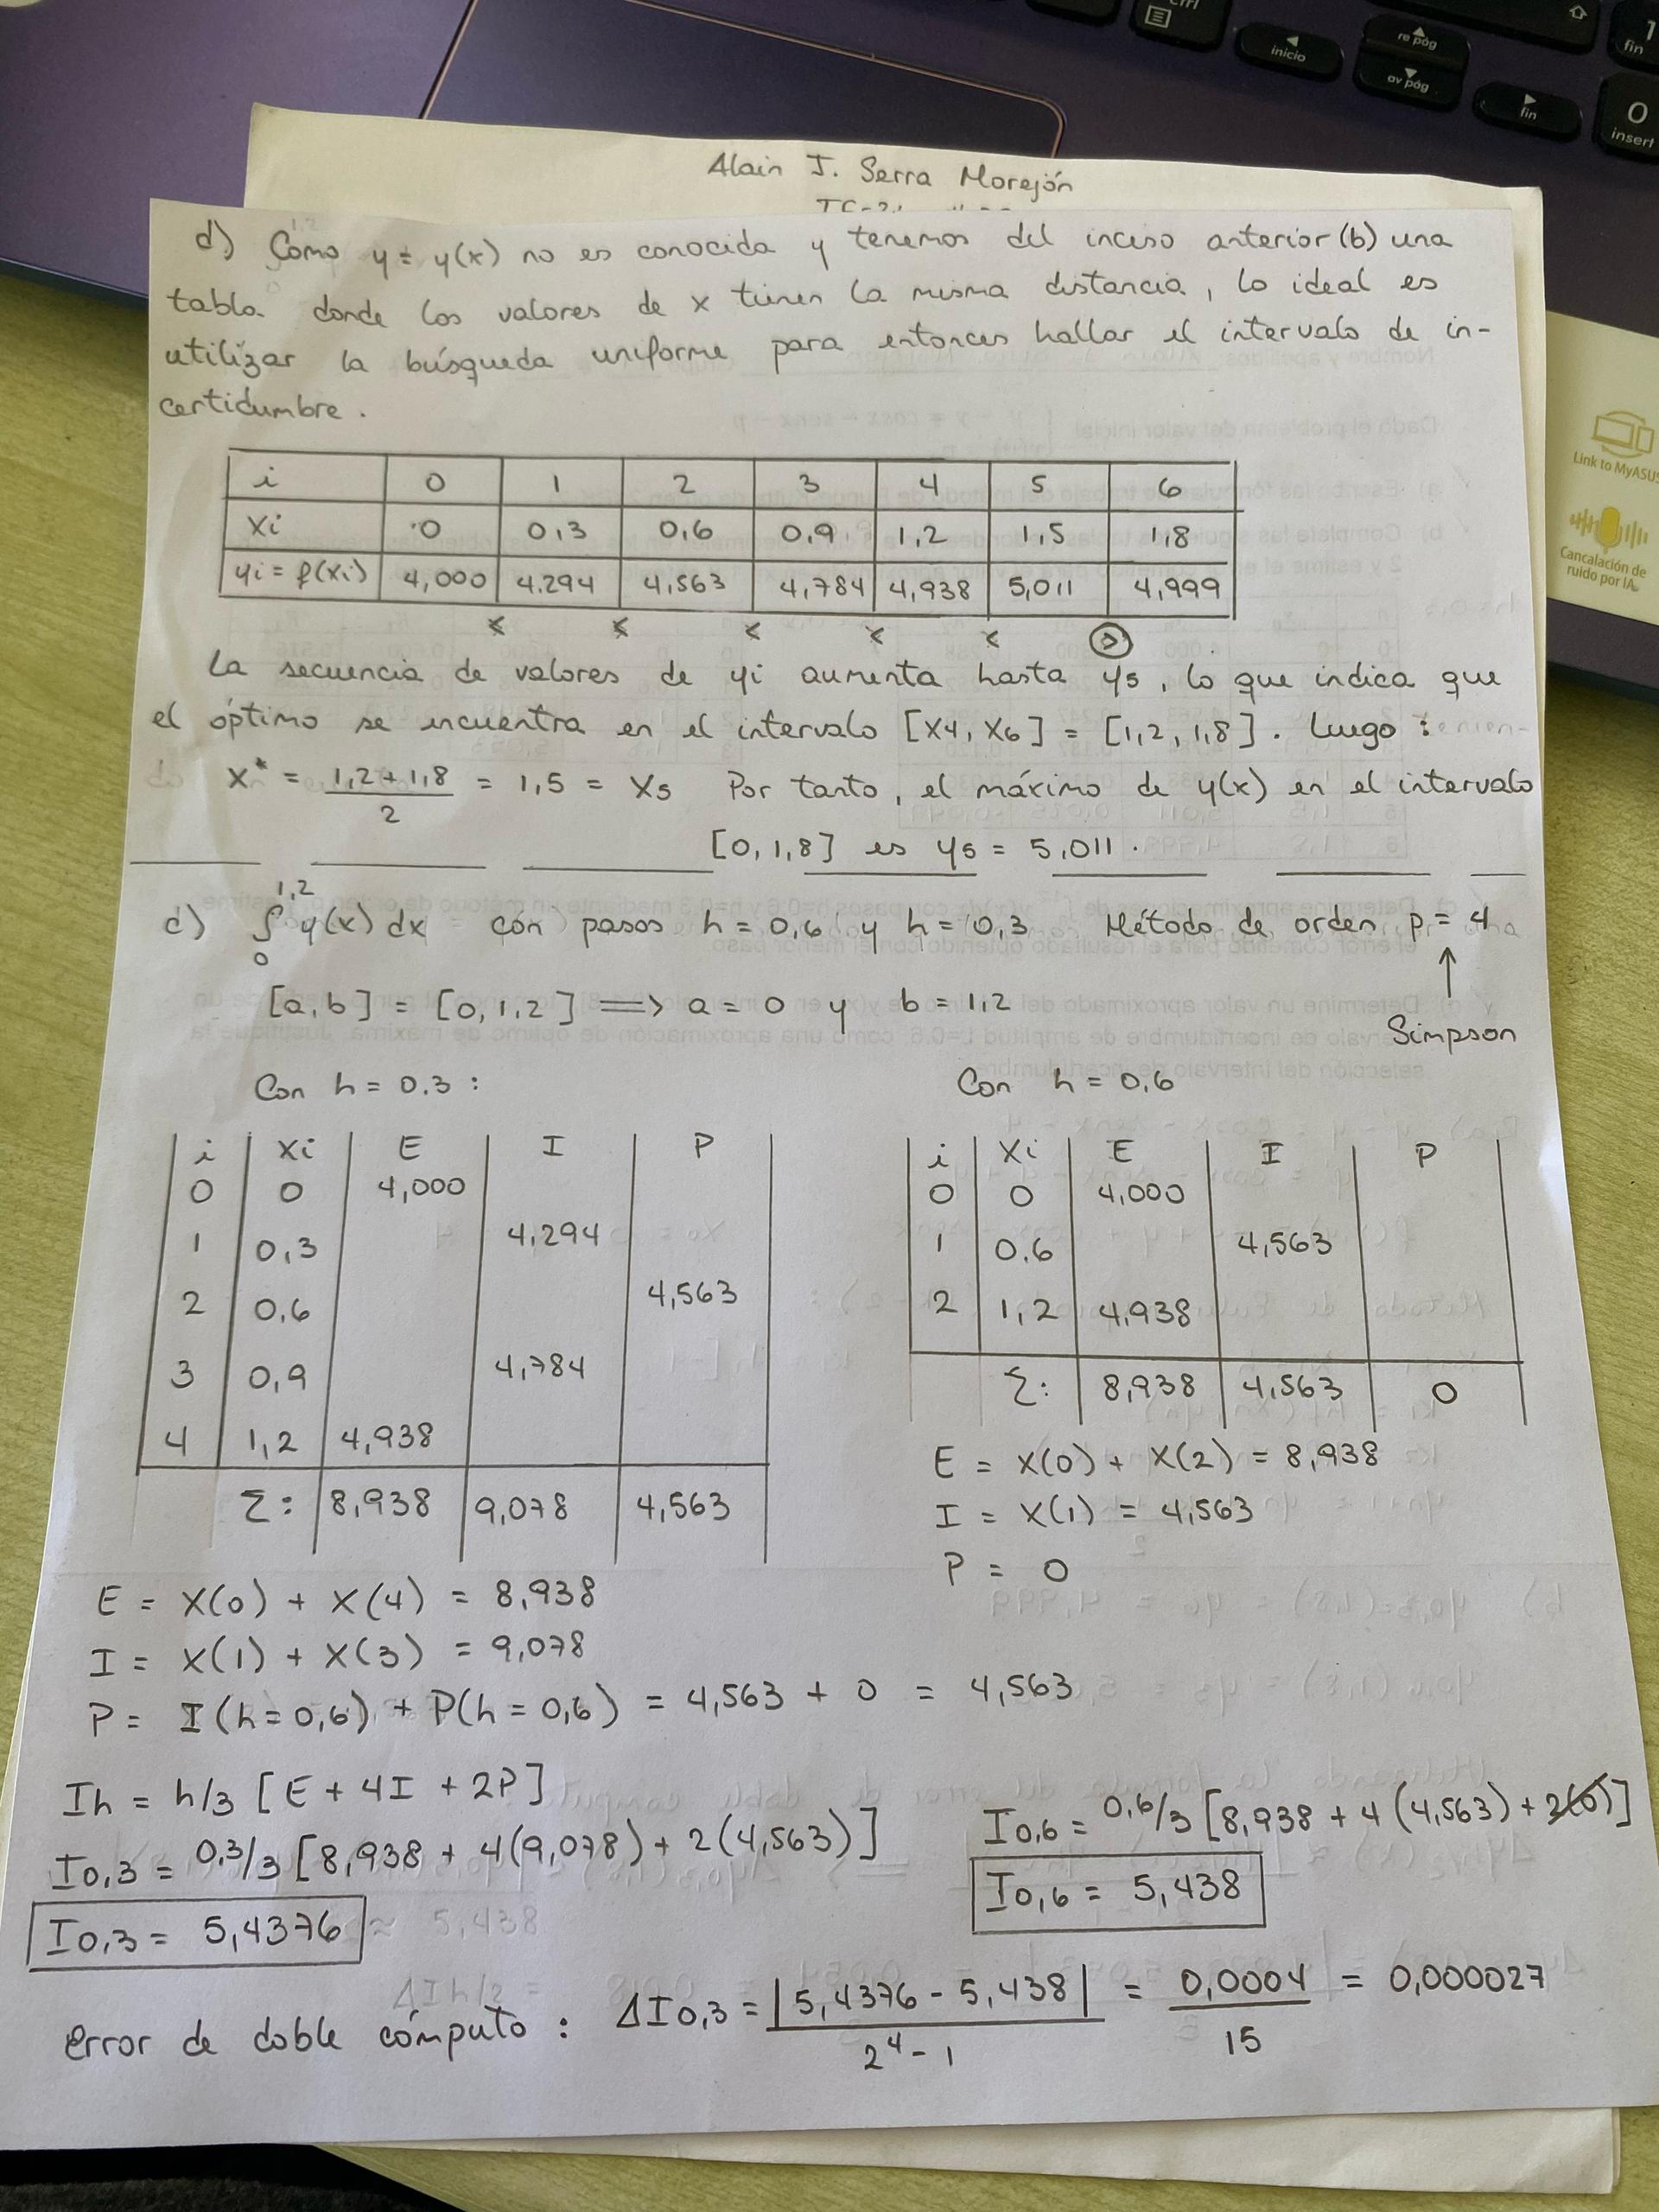 ctrl
inicio
re pág
av pág
fin
1
fin
0
insert
Link to MyASUS
Cancelación de
ruido por IA
Alain J. Serra Morejón
d) Como y = y(x) no es conocida y tenemos del inciso anterior (b) una
tabla donde los valores de x tienen la misma distancia, lo ideal es
utilizar la búsqueda uniforme para entonces hallar el intervalo de in-
certidumbre.
i 0 1 2 3 4 5 6
xi 0 0,3 0,6 0,9 1,2 1,5 1,8
yi = f(xi) 4,000 4.294 4,563 4,784 4,938 5,011 4,999
< < < < < >
La secuencia de valores de yi aumenta hasta y5, lo que indica que
el óptimo se encuentra en el intervalo [x4, x6] = [1,2, 1,8]. Luego:
x* = (1,2 + 1,8)/2 = 1,5 = x5 Por tanto, el máximo de y(x) en el intervalo
[0, 1,8] es y5 = 5,011.
c) ∫₀^1,2 y(x) dx con pasos h = 0,6 y h = 0,3 Método de orden p = 4
↑
[a,b] = [0, 1,2] ⟹ a = 0 y b = 1,2
Simpson
Con h = 0.3 :
i xi E I P
0 0 4,000
1 0,3 4,294
2 0,6 4,563
3 0,9 4,784
4 1,2 4,938
Σ: 8,938 9,078 4,563
E = x(0) + x(4) = 8,938
I = x(1) + x(3) = 9,078
P = I(h=0,6) + P(h=0,6) = 4,563 + 0 = 4,563
Con h = 0,6
i xi E I P
0 0 4,000
1 0.6 4,563
2 1,2 4,938
Σ: 8,938 4,563 0
E = x(0) + x(2) = 8,938
I = x(1) = 4,563
P = 0
Ih = h/3 [E + 4I + 2P]
I0,3 = 0,3/3 [8,938 + 4(9,078) + 2(4,563)]
I0,3 = 5,4376 ≈ 5,438
I0,6 = 0,6/3 [8,938 + 4(4,563) + 2(0)]
I0,6 = 5,438
error de doble cómputo : ΔI0,3 = |5,4376 - 5,438| / (2⁴ - 1) = 0,0004/15 = 0,000027